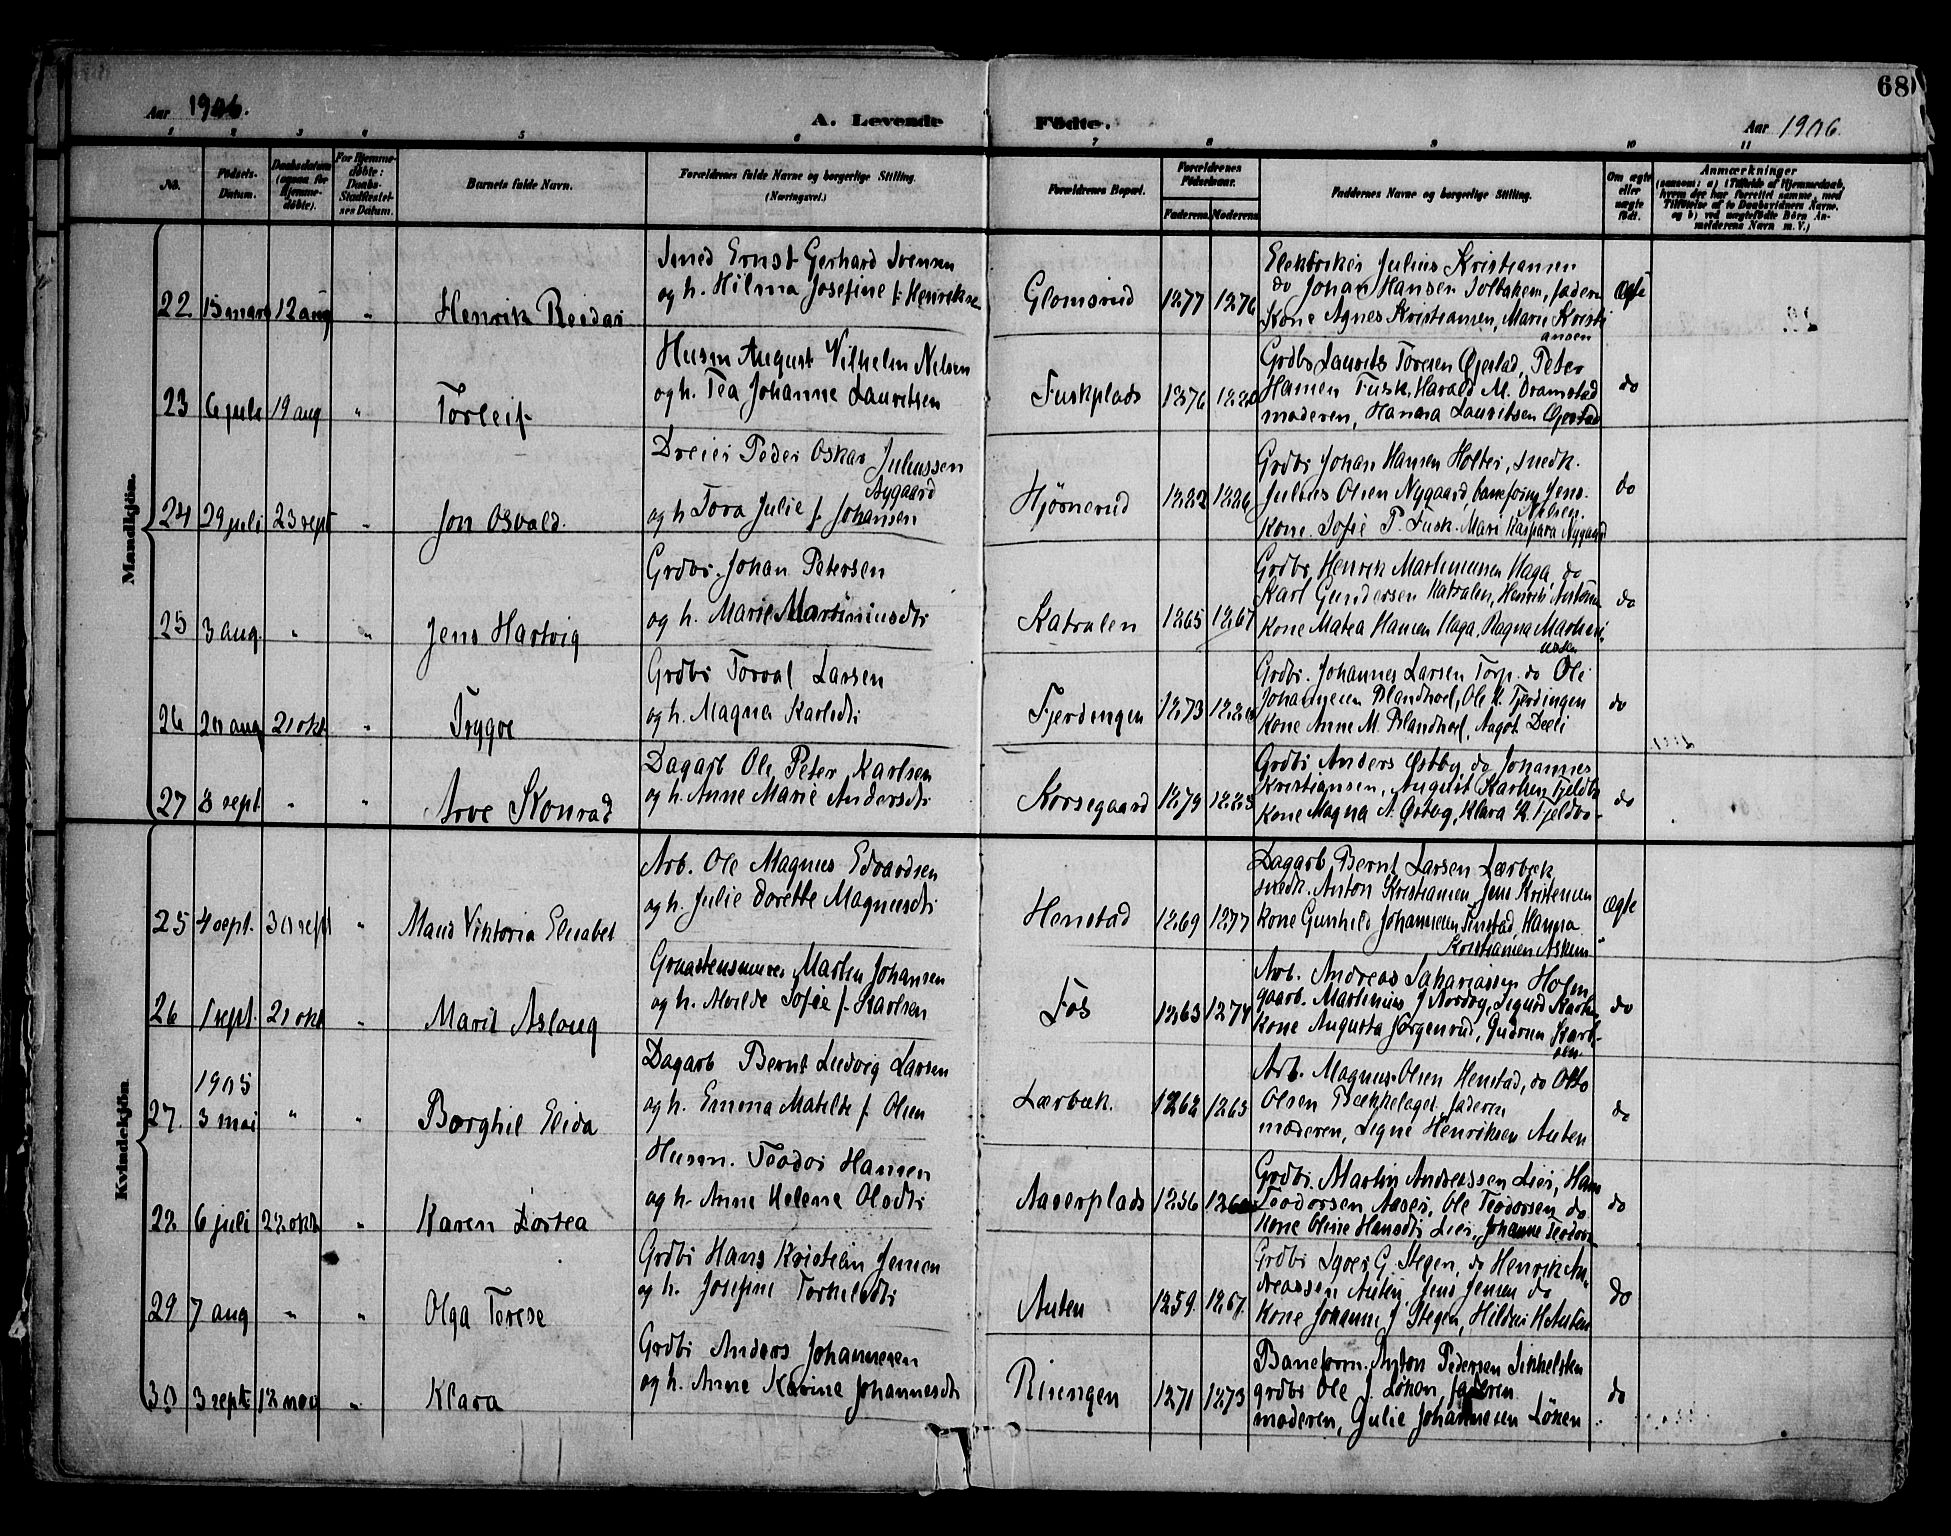 68
Aar 1906.
A. Levende Födte.
Aar 1906.
1 2 3 4 5 6 7 8 9 10 11
No.
Födsels-Datum.
Daabsdatum (ogsaa for Hjemme-döbte).
For Hjemme-döbte: Daabs-Stadfæstel-ses Datum.
Barnets fulde Navn.
Forældrenes fulde Navne og borgerlige Stilling. (Næringsvei.)
Forældrenes Bopæl.
Forældrenes Födselsaar.
Faderens. Moderens.
Faddernes Navne og borgerlige Stilling.
Om ægte eller uægte födt.
Anmærkninger
(saasom: a) i Tilfælde af Hjemmedaab, hvem der har forrettet samme, med Tilföielse af to Daabsvidners Navne, og b) ved uægtefödte Börn An-melderens Navn m. V.)
Mandkjön.
22 15 mars 12 aug " Henrik Reidar
Smed Ernst Gerhard Svensen
og h. Hilma Josefine f. Henriksen
Glomsrud 1877 1876
Elektriker Julius Kristiansen
do Johan Hansen Solbakken, faderen
Kone Agnes Kristiansen, Marie Kristi
ansen
Ægte
23 6 juli 19 aug " Torleif
Husm August Vilhelm Nilsen
og h. Tea Johanne Lauritsen
Fuskplads 1876 1880
Grdbr Laurits Toresen Gjerstad, Peter
Hansen Fusk, Harald M. Dramstad
moderen, Hanna Lauritsen Gjerstad
do
24 29 juli 23 sept " Jon Osvald.
Dreier Peder Oskar Juliussen
Nygaard
og h Tora Julie f. Johansen
Hjørnerud 1882 1886
Grdbr Johan Hansen Holter, snedk.
Julius Olsen Nygaard, baneform Jens
Nilsen.
Kone Sofie P. Fusk. Mari Kaspara Nygaard
do
25 3 aug. " " Jens Hartvig
Grdbr. Johan Petersen
og h. Marie Martiniusdtr
Katralen 1865 1867
Grdbr, Henrik Martinusen Haga, do
Karl Gundersen Katralen, Henrik Antonsen
Kone Matea Hansen Haga, Ragna Martini
ussen
do
26 20 aug 21 okt " Trygve
Grdbr Torval Larsen
og h. Magna Karlsdtr
Fjerdingen 1873 1880
Grdbr. Johannes Larsen Torp. do Ole
Johannesen Blandhoel, Ole H. Fjerdingen
Kone Anne M. Blandhoel, Aagot Dæli
do
27 8 sept " " Arve Konrad
Dagarb Ole Peter Karlsen
og h. Anne Marie Andersdtr
Korsegaard 1879 1885
Grdbr Anders Østby do Johannes
Kristiansen, August Karlsen Fjeldbo
Kone Magna A. Østby, Klara K. Fjeldbo
do
Kvindekjön.
25 4 sept. 30 sept " Maud Viktoria Elisabet
Arb. Ole Magnus Edvardsen
og h. Julie Dorette Magnusdtr
Henstad 1869 1877
Dagarb Bernt Larsen Lærbæk,
snedk. Anton Kristiansen, Jens Kristensen
Kone Gunhild Johannesen Finstad, Hanna
Kristiansen Askim
Ægte
26 1 sept. 21 okt " Marit Aslaug
Graastensmurer Martin Johansen
og h. Alvilde Sofie f. Karlsen
Fos 1863 1874
Arb. Andreas Sakariassen Holm
gaarb. Martinius J Nordby, Sigurd Karlsen
Kone Augusta Jørgensrud, Gudrun Karl-
sen
do
27. 1905 3 mai " " Borghil Elida
Dagarb Bernt Ludvig Larsen
og h. Emma Matilde f. Olsen
Lærbæk. 1862 1865
Arb. Magnus Olsen Henstad, do Otto
Olsen Bækkelaget, faderen
moderen, Signe Henriksen Auten
do
28 6 juli 28 okt " Karen Dortea
Husm. Teodor Hansen
og h. Anne Helene Olsdtr
Aaserplads 1856 1860
Grdbr. Martin Andreassen Lier, Hans
Teodorsen Aaser, Ole Teodorsen do
Kone Oline Hansdtr Lier, Johanne Teodors
do
29 7 aug " " Olga Terese
Grdbr Hans Kristelin Jensen
og h. Josefine Torkelsdtr
Auten 1859. 1867.
Grdbr Syver G. Stegen, do Henrik An-
dreassen Auten Jens Jensen do
Kone Johanne J Stegen, Hildur H Auten
do
30 3 sept. 18 nov " Klara
Grdbr Anders Johannesen
og h. Anne Karine Johannesdtr
Risengen 1871 1873
Baneform. Anton Pedersen Sikkelsten
grdbr Ole J. Løken, faderen
moderen, Gulie Johannesen Løken
do